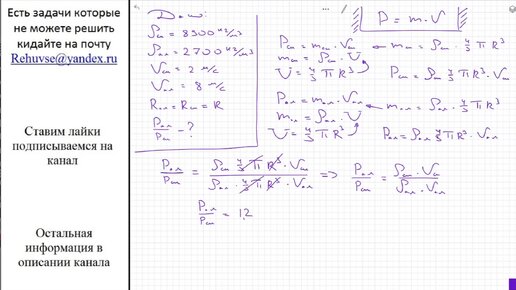 Есть задачи которые
не можете решить
кидайте на почту
Rehuvse@yandex.ru
Ставим лайки
подписываемся на
канал
Остальная
информация в
описании канала
Дано:
ρсп = 8900 кг/м³
ρал = 2700 кг/м³
Vсп = 2 м/с
Vал = 8 м/с
Rал = Rсп = R
Pал/Pсп - ?
P = m · V
Pсп = mсп · Vсп ← mсп = ρсп · 4/3 π R³
mсп = ρсп · V
V = 4/3 π R³
Pсп = ρсп 4/3 π R³ · Vсп
Pал = mал · Vал ← mал = ρал · 4/3 π R³
mал = ρал · V
V = 4/3 π R³
Pал = ρал 4/3 π R³ · Vал
Pал/Pсп = ρсп 4/3 π R³ · Vсп / ρал · 4/3 π R³ · Vал => Pал/Pсп = ρсп · Vсп / ρал · Vал
Pал/Pсп = 1,2